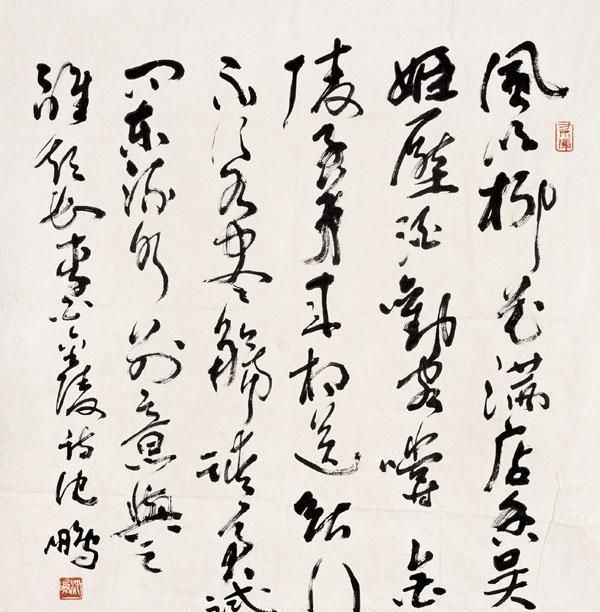 風吹柳花滿店香吳
姬壓酒勸客嘗金
陵子弟來相送欲行
不行各盡觴請君試
問東流水別意與之
誰短長李白金陵詩沈鵬